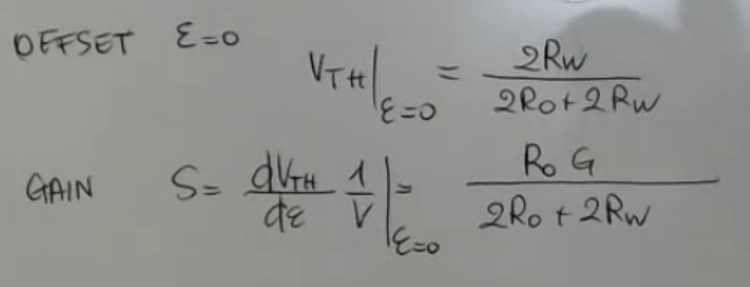 OFFSET ε=0
V_TH|_ε=0 = 2Rw / 2Ro+2Rw
GAIN S= dV_TH/dε 1/V|_ε=0 = Ro G / 2Ro+2Rw